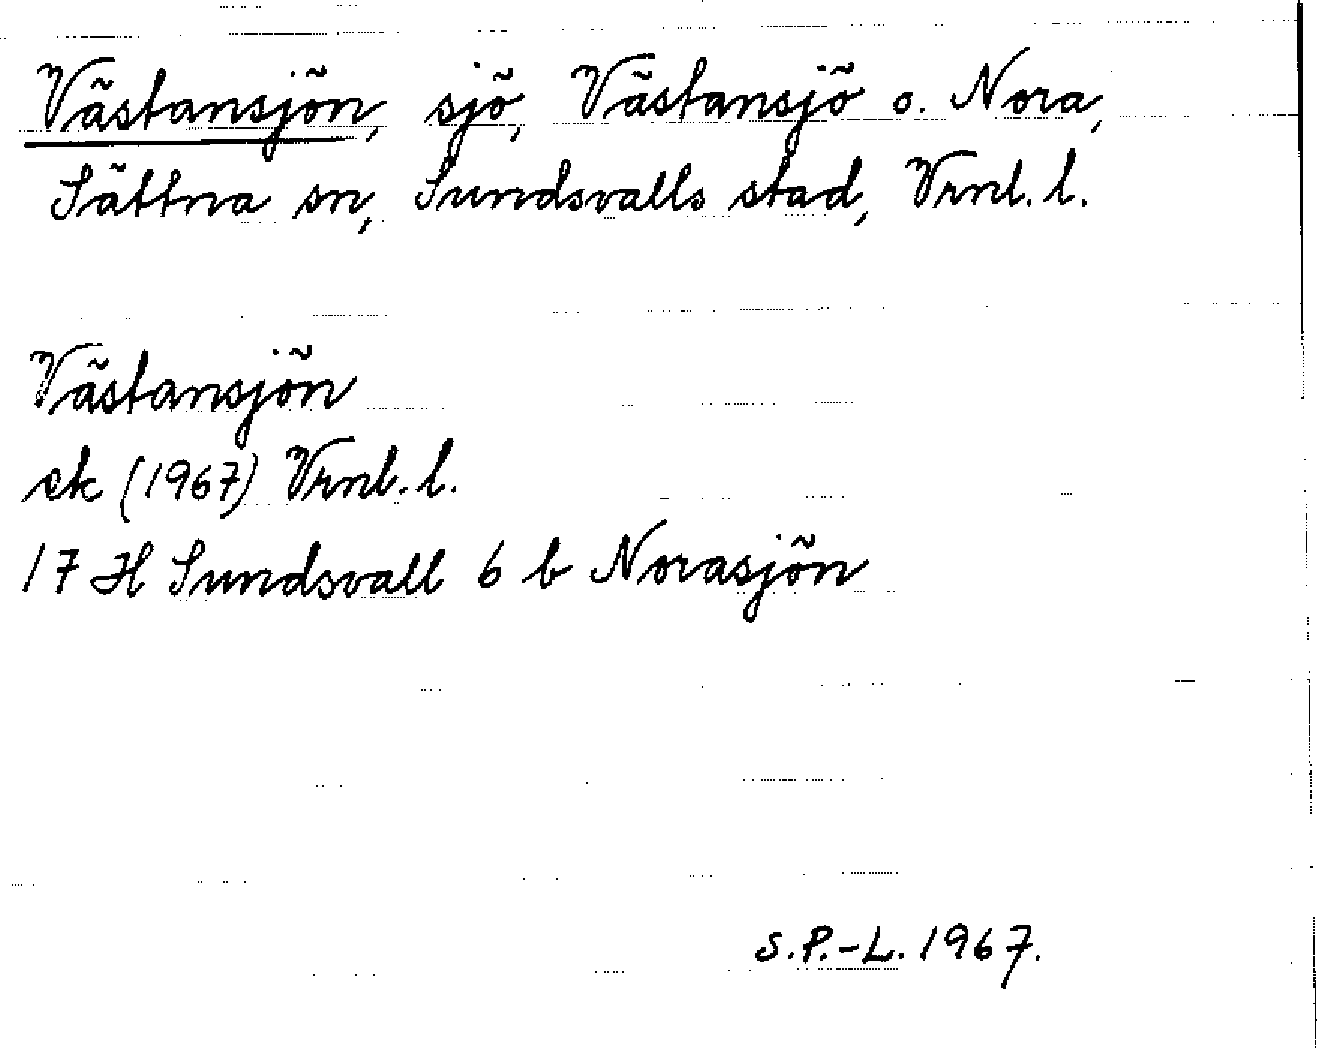 Västansjön, sjö, Västansjö o. Nora,
Sättna sn, Sundsvalls stad, Vrnl. l.
Västansjön
ek (1967) Vrnl. l.
17 H Sundsvall 6 b Norasjön
S.P.-L. 1967.